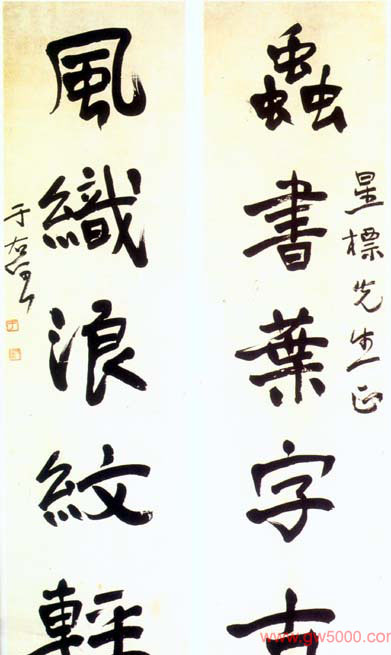 星標先生正
蟲書葉字古
風織浪紋輕
于右任
www.gw5000.com